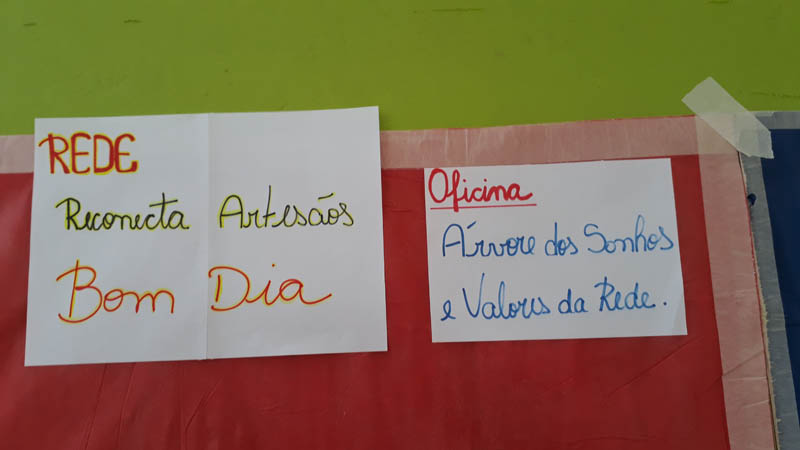 REDE
Reconecta Artesãos
Bom Dia
Oficina
Árvore dos Sonhos
e Valores da Rede.